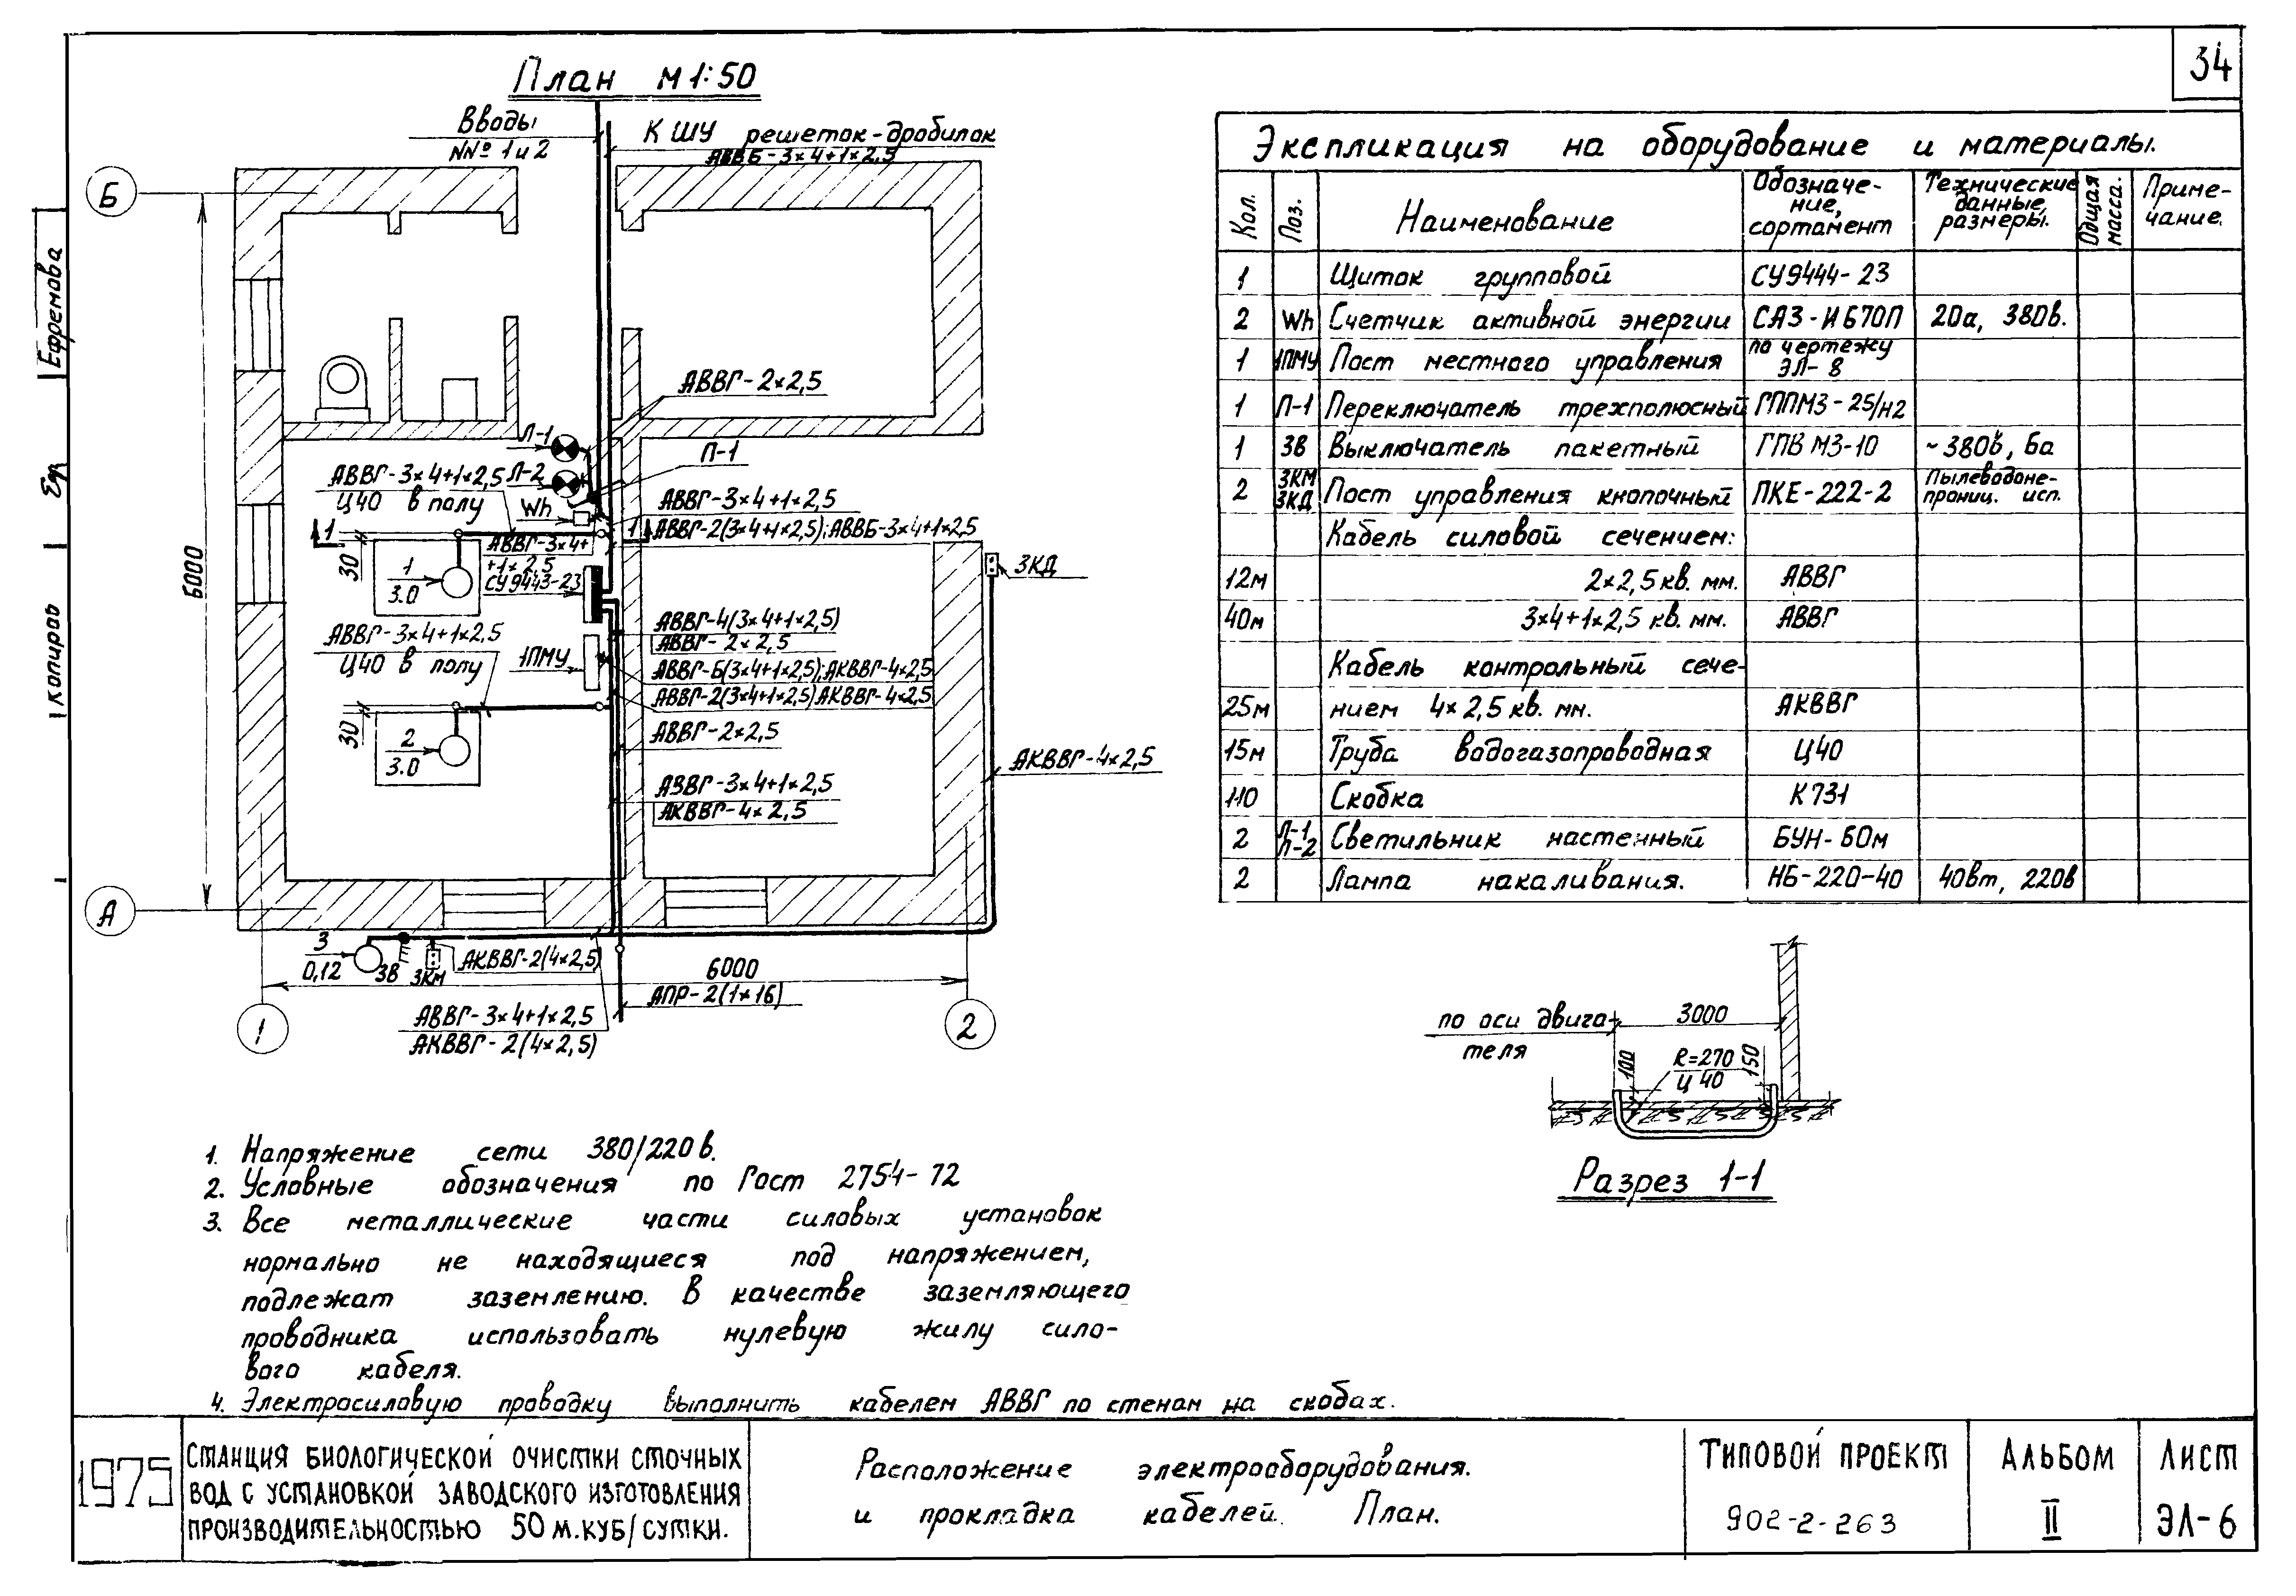 34
План М 1:50
Вводы
NNº 1 и 2
К ШУ решеток-дробилок
АВВБ-3×4+1×2,5
Б
6000
АВВГ-2×2,5
Л-1
П-1
АВВГ-3×4+1×2,5
Л-2
Ц40 в полу
Wh
АВВГ-3×4+1×2,5
АВВГ-2(3×4+1×2,5); АВВБ-3×4+1×2,5
1
1
30
АВВГ-3×4+
+1×2,5
СУ9443-23
1
3.0
3КД
АВВГ-4(3×4+1×2,5)
АВВГ-2×2,5
АВВГ-3×4+1×2,5
Ц40 в полу
1ПМУ
АВВГ-Б(3×4+1×2,5); АКВВГ-4×2,5
АВВГ-2(3×4+1×2,5) АКВВГ-4×2,5
30
2
3.0
АВВГ-2×2,5
АКВВГ-4×2,5
АЗВГ-3×4+1×2,5
АКВВГ-4×2,5
А
3
0,12
3В
3КМ
АКВВГ-2(4×2,5)
6000
АПР-2(1×16)
АВВГ-3×4+1×2,5
АКВВГ-2(4×2,5)
1
2
Экспликация на оборудование и материалы.
Кол.
Поз.
Наименование
Обозначе-
ние,
сортамент
Технические
данные,
размеры.
Общая
масса.
Приме-
чание.
1 Щиток групповой СУ9444-23
2 Wh Счетчик активной энергии СА3-И670П 20а, 380в.
1 1ПМУ Пост местного управления по чертежу ЭЛ-8
1 П-1 Переключатель трехполюсный ГППМ3-25/н2
1 3В Выключатель пакетный ГПВМ3-10 ~380в, 6а
2 3КМ 3КД Пост управления кнопочный ПКЕ-222-2 Пылеводоне-
прониц. исп.
Кабель силовой сечением:
12м 2×2,5 кв. мм. АВВГ
40м 3×4+1×2,5 кв. мм. АВВГ
Кабель контрольный сече-
25м нием 4×2,5 кв. мм. АКВВГ
15м Труба водогазопроводная Ц40
110 Скобка К731
2 Л-1 Л-2 Светильник настенный БУН-60м
2 Лампа накаливания. НБ-220-40 40вт, 220в
по оси двига-
теля
3000
100
R=270
Ц 40
150
Разрез 1-1
1. Напряжение сети 380/220 в.
2. Условные обозначения по Гост 2754-72
3. Все металлические части силовых установок
нормально не находящиеся под напряжением,
подлежат заземлению. В качестве заземляющего
проводника использовать нулевую жилу сило-
вого кабеля.
4. Электросиловую проводку выполнить кабелем АВВГ по стенам на скобах.
Ефремова
Копировь
1975
СТАНЦИЯ БИОЛОГИЧЕСКОЙ ОЧИСТКИ СТОЧНЫХ
ВОД С УСТАНОВКОЙ ЗАВОДСКОГО ИЗГОТОВЛЕНИЯ
ПРОИЗВОДИТЕЛЬНОСТЬЮ 50 М.КУБ/СУТКИ.
Расположение электрооборудования.
и прокладка кабелей. План.
ТИПОВОЙ ПРОЕКТ
902-2-263
АЛЬБОМ
II
ЛИСТ
ЭЛ-6